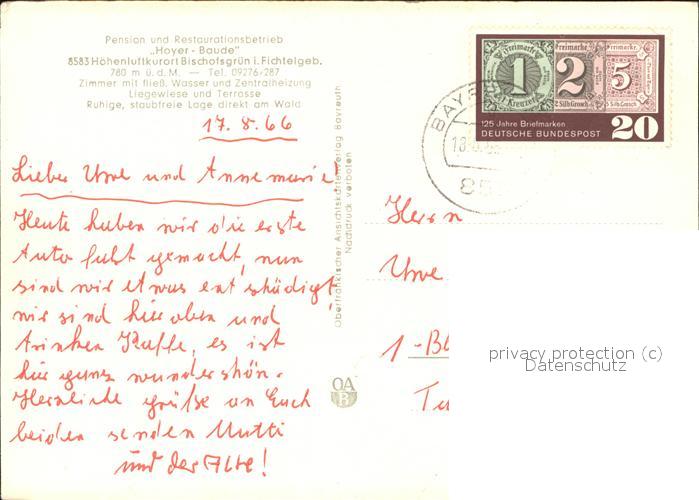 Pension und Restaurationsbetrieb
„Hoyer-Baude"
8583 Höhenluftkurort Bischofsgrün i. Fichtelgeb.
780 m ü. d. M. — Tel. 09276/287
Zimmer mit fließ. Wasser und Zentralheizung
Liegewiese und Terrasse
Ruhige, staubfreie Lage direkt am Wald
17.8.66
Lieber Uwe und Annemarie!
Heute haben wir die erste
Auto faht gemacht, nun
sind wir etwas entshüdigt
wir sind hier oben und
trinken Kaffe, es ist
hier ganz wundershön.
Herzliche Grüße an Euch
beiden senden Mutti
und der Alte!
Oberfränkischer Ansichtskartenverlag Bayreuth
Nachdruck verboten
OA
B
1 2 5
Freimarke Freimarke Freimarke.
Kreuzer 2 Silb Grosch 5 Silb Grosch.
125 Jahre Briefmarken
DEUTSCHE BUNDESPOST 20
BAY
18.
85
Herrn
Uwe
1-B
privacy protection (c)
Datenschutz